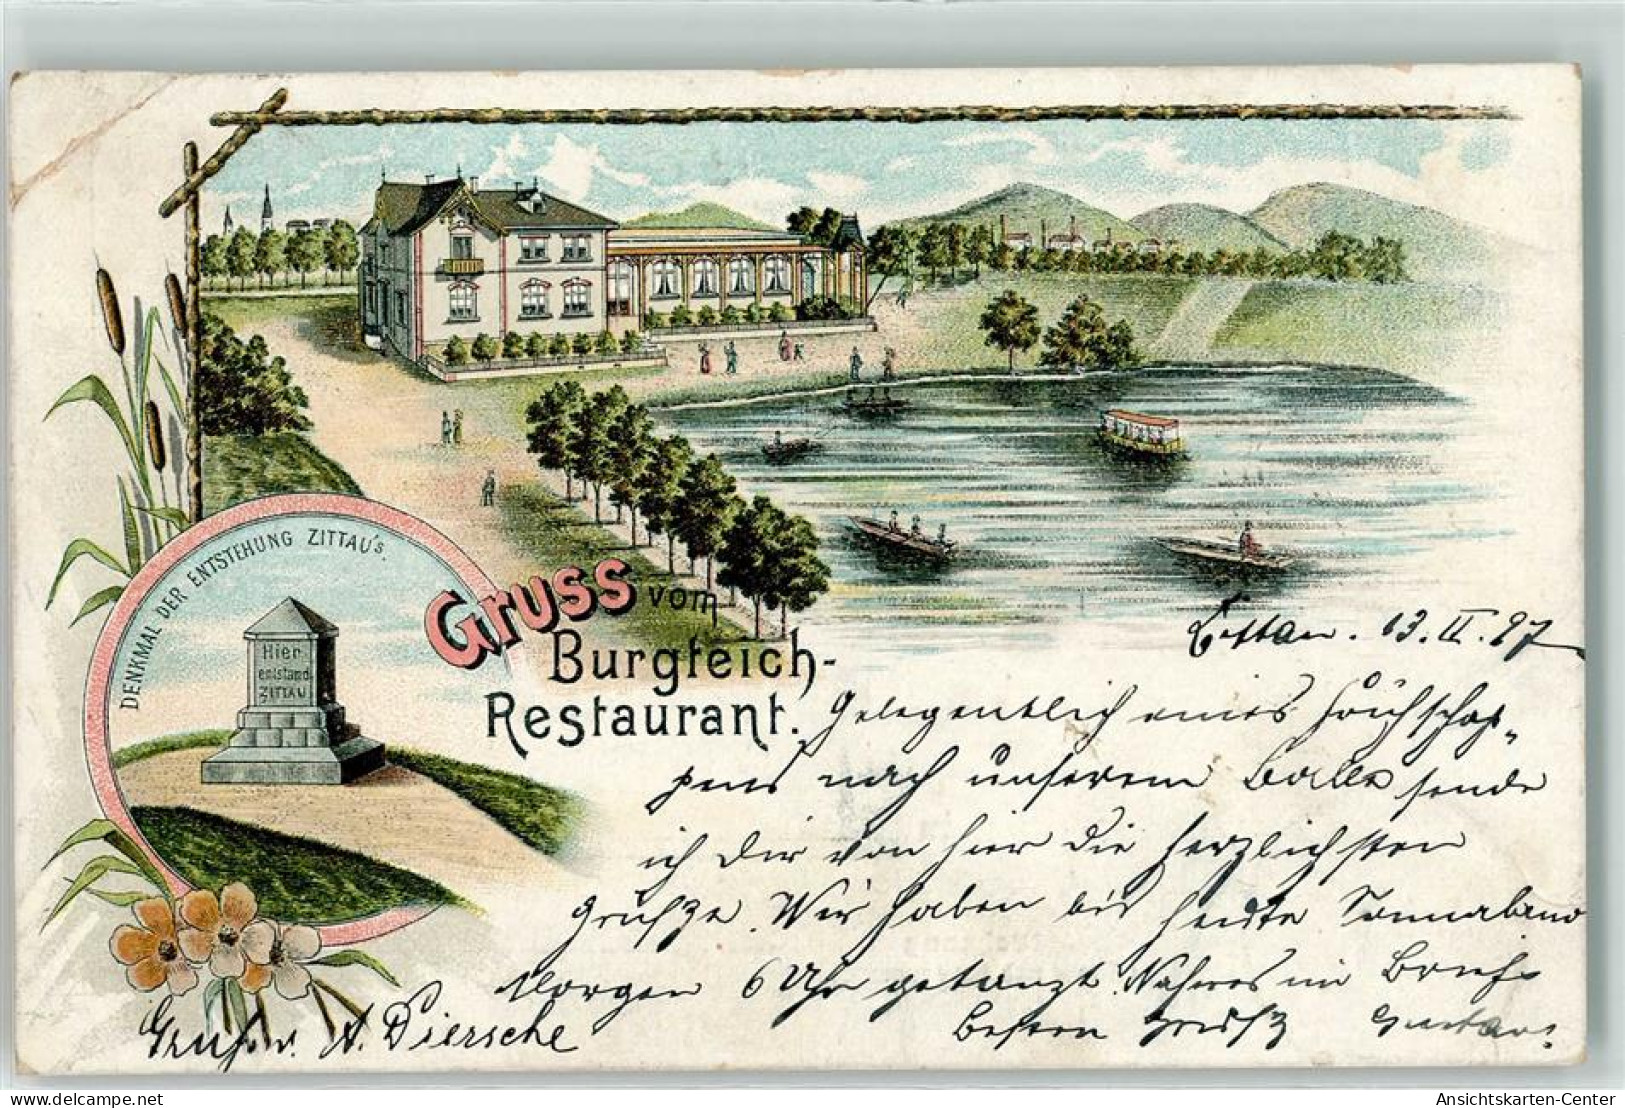 DENKMAL DER ENTSTEHUNG ZITTAU's.
Hier
entstand
ZITTAU
Gruss vom
Burgteich-
Restaurant.
Zittau. 13. II. 97
Gelegentlich eines Frühschop„
pens nach unserem Balle sende
ich Dir von hier die herzlichsten
Grüße. Wir haben bis heute Sonnabend
Morgen 6 Uhr getanzt. Näheres im Brief.
Besten Gruß Gustav.
Gruß A. Diersche
Ansichtskarten-Center